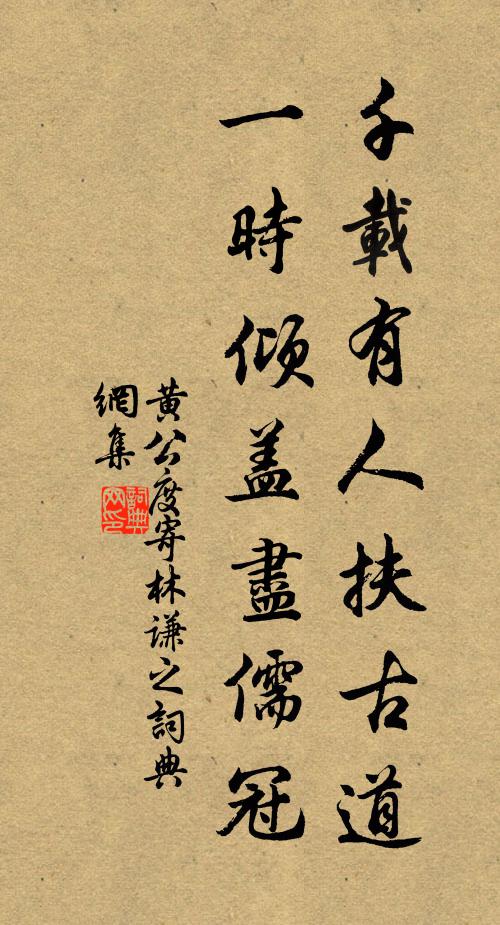 千載有人扶古道
一時傾盖盡儒冠
黄公度寄林謙之詞典
網集
詞典
网印